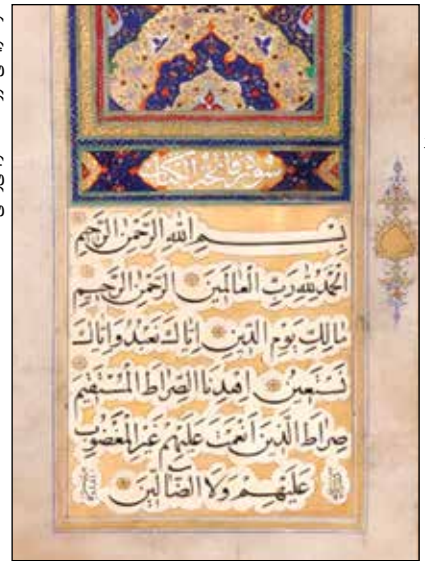 سورة فاتحة الكتاب
بِسْمِ اللهِ الرَّحْمٰنِ الرَّحِيمِ
اَلْحَمْدُ لِلّٰهِ رَبِّ الْعَالَمِينَ الرَّحْمٰنِ الرَّحِيمِ
مَالِكِ يَوْمِ الدِّينِ اِيَّاكَ نَعْبُدُ وَاِيَّاكَ
نَسْتَعِينُ اِهْدِنَا الصِّرَاطَ الْمُسْتَقِيمَ
صِرَاطَ الَّذِينَ اَنْعَمْتَ عَلَيْهِمْ غَيْرِ الْمَغْضُوبِ
عَلَيْهِمْ وَلَا الضَّالِّينَ